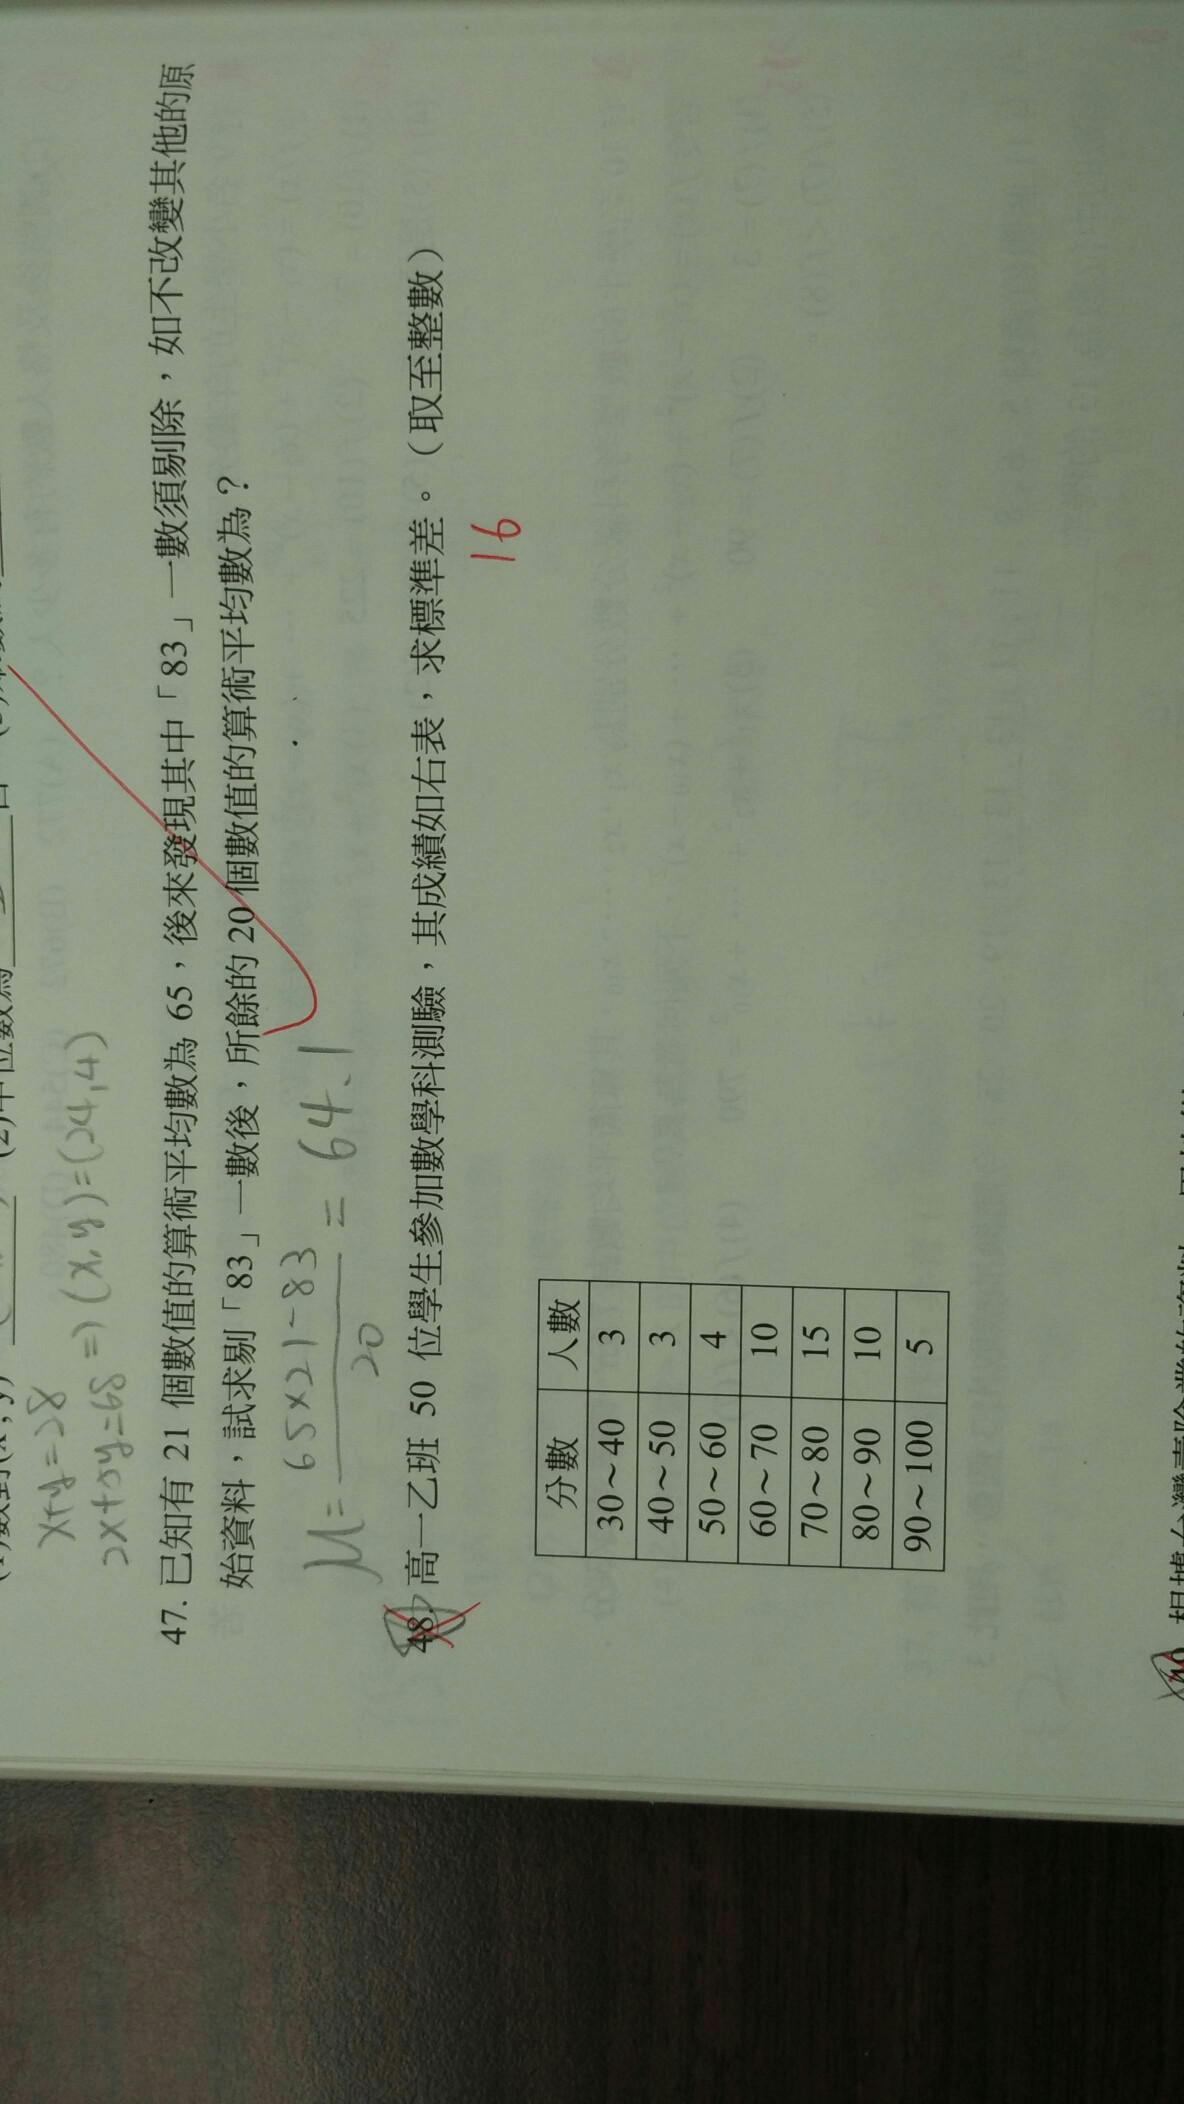 x+y=28
2x+5y=68 => (x,y)=(24,4)
47. 已知有 21 個數值的算術平均數為 65，後來發現其中「83」一數須剔除，如不改變其他的原
始資料，試求剔「83」一數後，所餘的 20 個數值的算術平均數為？
μ= 65×21-83 / 20 = 64.1
48. 高一乙班 50 位學生參加數學科測驗，其成績如右表，求標準差。（取至整數）
16
分數 人數
30～40 3
40～50 3
50～60 4
60～70 10
70～80 15
80～90 10
90～100 5